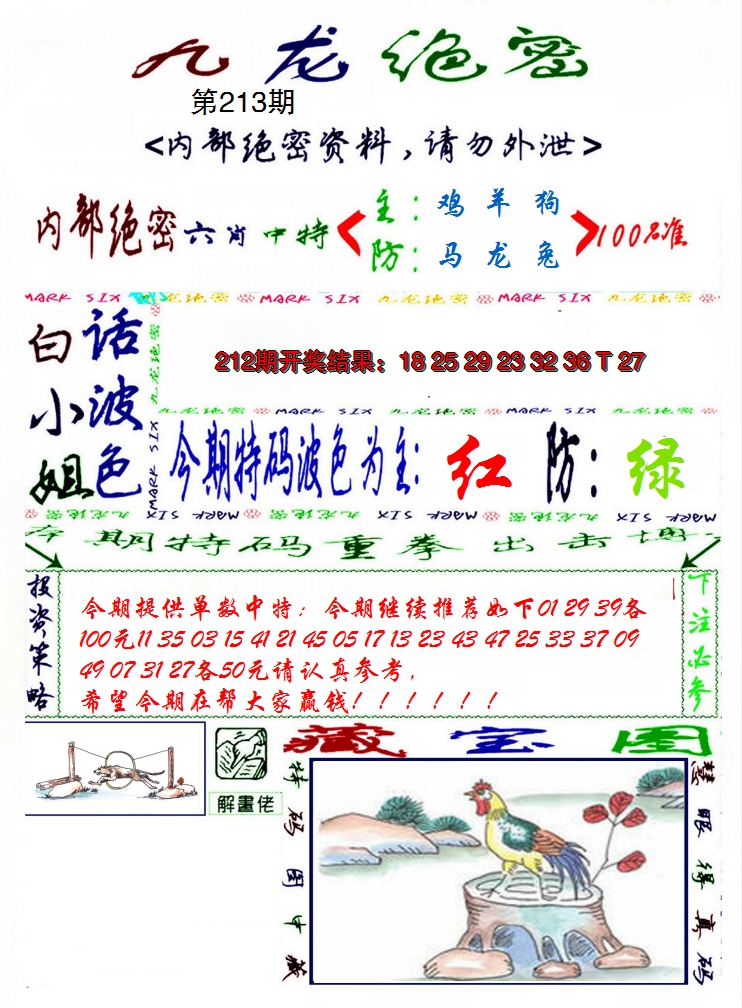 九龙绝密
第213期
<内部绝密资料，请勿外泄>
内部绝密六肖中特
主：鸡 羊 狗
防：马 龙 兔
100%准
MARK SIX 九龙绝密 MARK SIX 九龙绝密 MARK SIX 九龙绝密
白小姐
话波色
九龙绝密
MARK SIX
212期开奖结果：18 25 29 23 32 36 T 27
九龙绝密 MARK SIX 九龙绝密 MARK SIX 九龙绝密
今期特码波色为主：红 防：绿
MARK SIX 九龙绝密 MARK SIX 九龙绝密 MARK SIX 九龙绝密
期特码重拳出击
投资策略
今期提供单数中特；今期继续推荐如下01 29 39各
100元11 35 03 15 41 21 45 05 17 13 23 43 47 25 33 37 09
49 07 31 27各50元请认真参考，
希望今期在帮大家赢钱！！！！！！
下注必参
解畫佬
藏宝图
特码图中藏
慧眼得真码